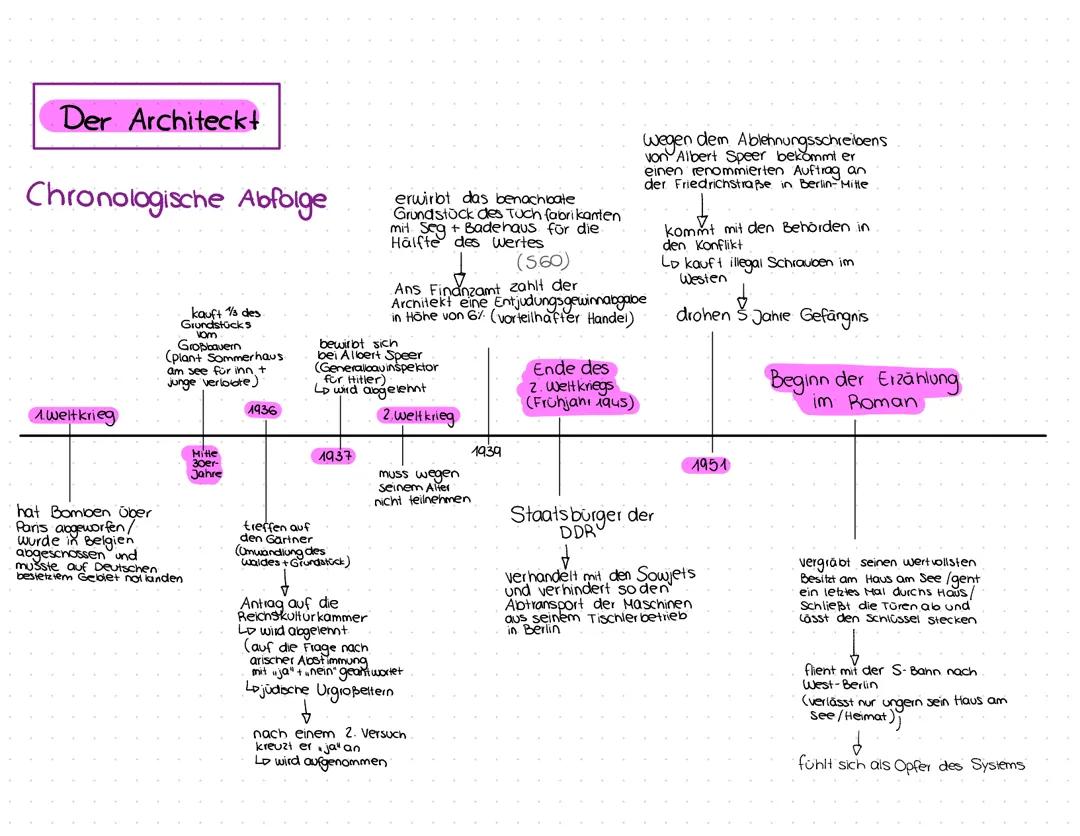 Der Architeckt
Chronologische Abfolge
1. Weltkrieg
hat Bomben über
Paris abgeworfen/
wurde in Belgien
abgeschossen und
musste auf Deutschen
besetztem Gebiet notlanden
kauft 1/3 des
Grundstücks
vom
Großbauern
(plant Sommerhaus
am see für ihn +
junge verlobte)
Mitte
30er-
Jahre
1936
treffen auf
den Gärtner
(Umwandlung des
Waldes + Grundstück)
Antrag auf die
Reichskulturkammer
↳ wird abgelehnt
(auf die Frage nach
arischer Abstimmung
mit „ja" + „nein" geantwortet
↳ jüdische Urgroßeltern
nach einem 2. Versuch
kreuzt er „ja" an
↳ wird aufgenommen
bewirbt sich
bei Albert Speer
(Generalbauinspektor
für Hitler)
↳ wird abgelehnt
1937
2. Weltkrieg
muss wegen
seinem Alter
nicht teilnehmen
erwirbt das benachbate
Grundstück des Tuchfabrikanten
mit Seg + Badehaus für die
Hälfte des Wertes
(S60)
Ans Finanzamt zahlt der
Architekt eine Entjudungsgewinnabgabe
in Höhe von 6% (vorteilhafter Handel)
1939
Ende des
2. Weltkriegs
(Frühjahr 1945)
Staatsbürger der
DDR
verhandelt mit den Sowjets
und verhindert so den
Abtransport der Maschinen
aus seinem Tischlerbetrieb
in Berlin
Wegen dem Ablehnungsschreibens
von Albert Speer bekommt er
einen renommierten Auftrag an
der Friedrichstraße in Berlin-Mitte
kommt mit den Behörden in
den Konflikt
↳ kauft illegal Schrauben im
Westen
drohen 5 Jahre Gefängnis
1951
Beginn der Erzählung
im Roman
vergräbt seinen wertvollsten
Besitzt am Haus am See /geht
ein letztes Mal durchs Haus/
Schließt die Türen ab und
lässt den Schlüssel stecken
flieht mit der S-Bahn nach
West-Berlin
(verlässt nur ungern sein Haus am
See/Heimat)
fühlt sich als Opfer des Systems